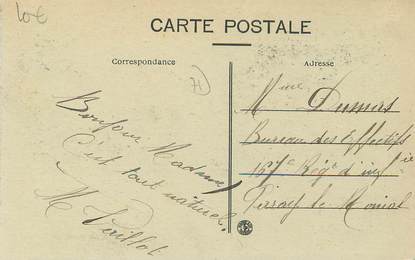 10€
CARTE POSTALE
Correspondance
Adresse
Bonjour Madame,
C'est tout naturel.
M
Mme Dumas
Bureau des Effectifs
157e Régt d'infie
le Monial